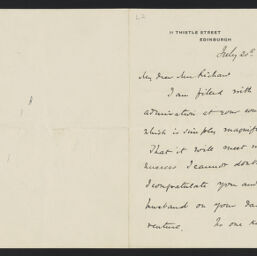 L2
11 THISTLE STREET
EDINBURGH
July 20th
My dear Mrs Richard
I am filled with
admiration at your
which is simply magnif
That it will meet
success I cannot doubt
I congratulate you and
husband on your da
venture. No one k